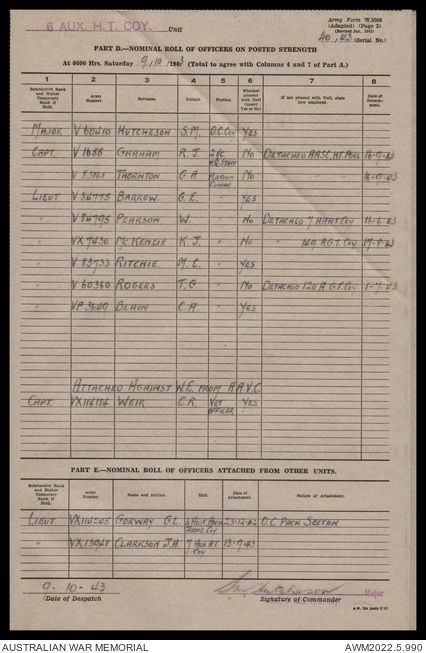 6 AUX. H.T. COY. Unit
Army Form W.3008
(Adapted) (Page 2)
(Revised Jan., 1943)
40/43 (Serial No.)
PART D.—NOMINAL ROLL OF OFFICERS ON POSTED STRENGTH
At 0600 Hrs. Saturday 9/10/1943 (Total to agree with Columns 4 and 7 of Part A.)
1 2 3 4 5 6 7 8
Substantive Rank and Higher Temporary Rank if Held. Army Number. Surname. Initials. Posting. Whether present with Unit (Insert Yes or No) If not present with Unit, state how employed. Date of Detachment.
MAJOR V60410 HUTCHESON S.M. O.C. COY YES
CAPT. V1658 GRAHAM R.J. NO DETACHED AASC HT POOL 16-9-43
" THORNTON G A NO " "
LIEUT V84775 BARROW. G.E. YES
" V84795 PEARSON W. " NO DETACHED 7 AUX HT COY
" VX7430 MCKENZIE K J. " NO " 149 A.G.T. COY
" V83733 RITCHIE. M.C. " YES
" V60360 ROGERS T.G. " NO DETACHED 120 A.G.T. COY 1-7-43
" VP3649 BLAIN C.A. " YES
ATTACHED AGAINST W.E. FROM A.A.V.C.
CAPT. VX114174 WEIR C.R. VET OFFICER YES
PART E.—NOMINAL ROLL OF OFFICERS ATTACHED FROM OTHER UNITS.
Substantive Rank and Higher Temporary Rank, if Held. Army Number. Name and Initials. Unit. Date of Attachment. Nature of Attachment.
LIEUT GORWAY G.L. 23-12-42 O.C. PACK SECTION
" CLARKSON J.H. 7 AUX H.T. COY 13-9-43
9-10-43
Date of Despatch
Signature of Commander
Major
AUSTRALIAN WAR MEMORIAL
AWM2022.5.990